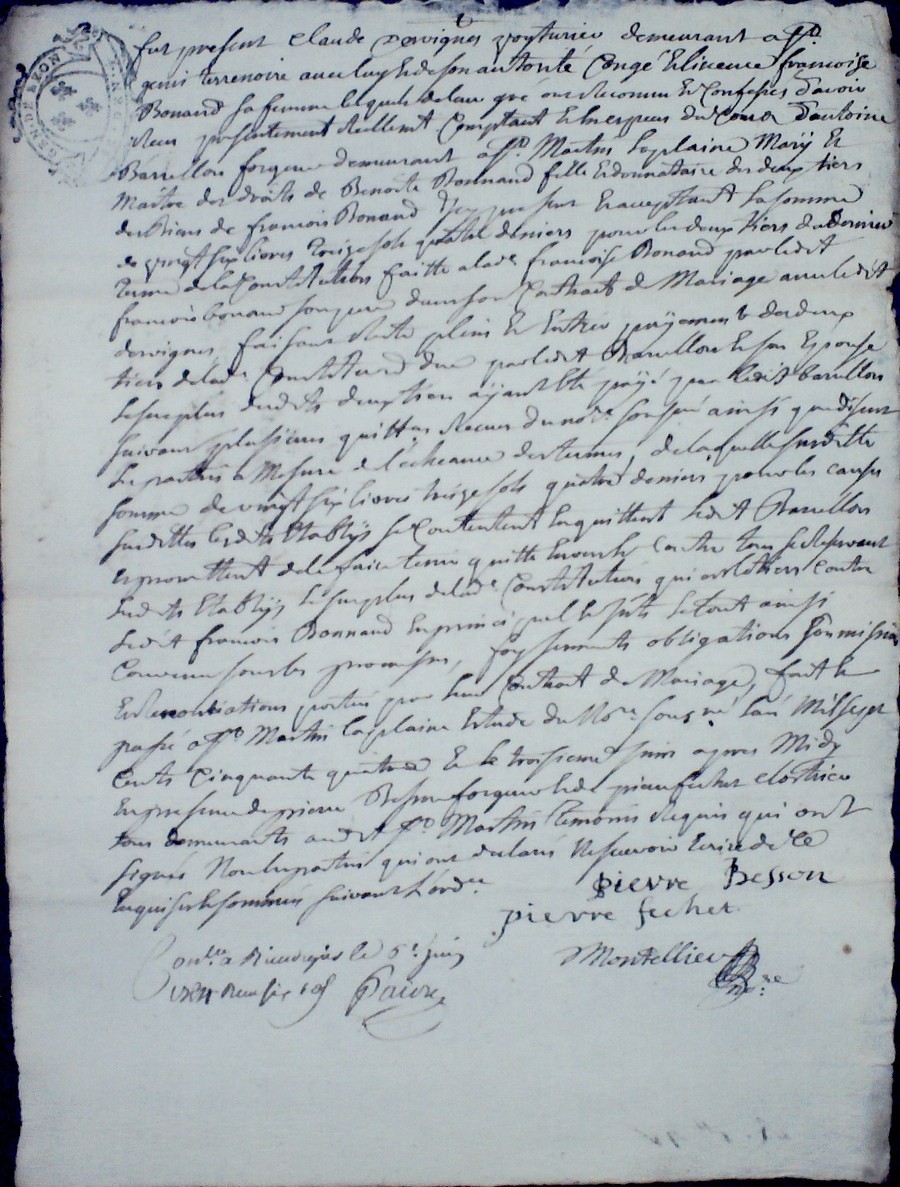 GEN. DE LYON
fut present claude desvignes voyturier demeurant a St
genis terrenoire avec luy et de son autorité Congé et licence francoise
Bonand sa femme lesquels de leur gre ont Reconnu et Confessés d'avoir
Receu presentement Reellement Comptant et en especes du Cours d'antoine
Barrellon forgeur demeurant a St Martin la plaine Mary et
Maitre des droits de Benoite Bonnand fille et donnataire des deux tiers
des Biens de francois Bonand Icy present et acceptant la somme
de vingt six livres treize sols quattre deniers pour les deux tiers du dernier
terme de la Constitution faitte a lade francoise Bonand par ledit
francois bonand son pere dans son Contrait de Mariage avec ledit
desvignes, faisant Reste plein et Entier payement des deux
tiers de lade Constitution due par ledit Barrellon et son Epouse
le surplus desdits deux tiers ayant Eté payé par ledit barrellon
suivant plusieurs quittces Receues du nore soussigné ainsi que disent
les parties a Mesure de l'écheance des termes, de laquelle susditte
somme de vingt six livres treize sols quatre deniers pour les causes
susdittes lesdits Etablys se Contentent En quittent ledit Barrellon
et promettent de le faire tenir quitte Envers et Contre tous se Reservant
lesdits Etablys le surplus de lade Constitution qui est le tiers Contre
ledit francois Bonnand En principal et le tout ainsi
Convenu sous les promesses, serments obligations soumissions
et Renonciations portées par leur Contrait de Mariage, fait et
passé a St Martin la plaine Etude du Nore soussigné l'an Mil sept
Cents Cinquante quattre et le troisieme juin apres Midy
En presence de pierre Besson forgeur et de pierre fechet cloutrier
tous demeurants audit St Martin temoins Requis qui ont
signés Non les parties qui ont declarés Ne scavoir Ecrire de Ce
Enquis et sommées suivant l'ordce
pierre Besson
pierre fechet
Montellier nore
Conllé a Rivedegier le 6e juin
1754 Receu six sols faivre